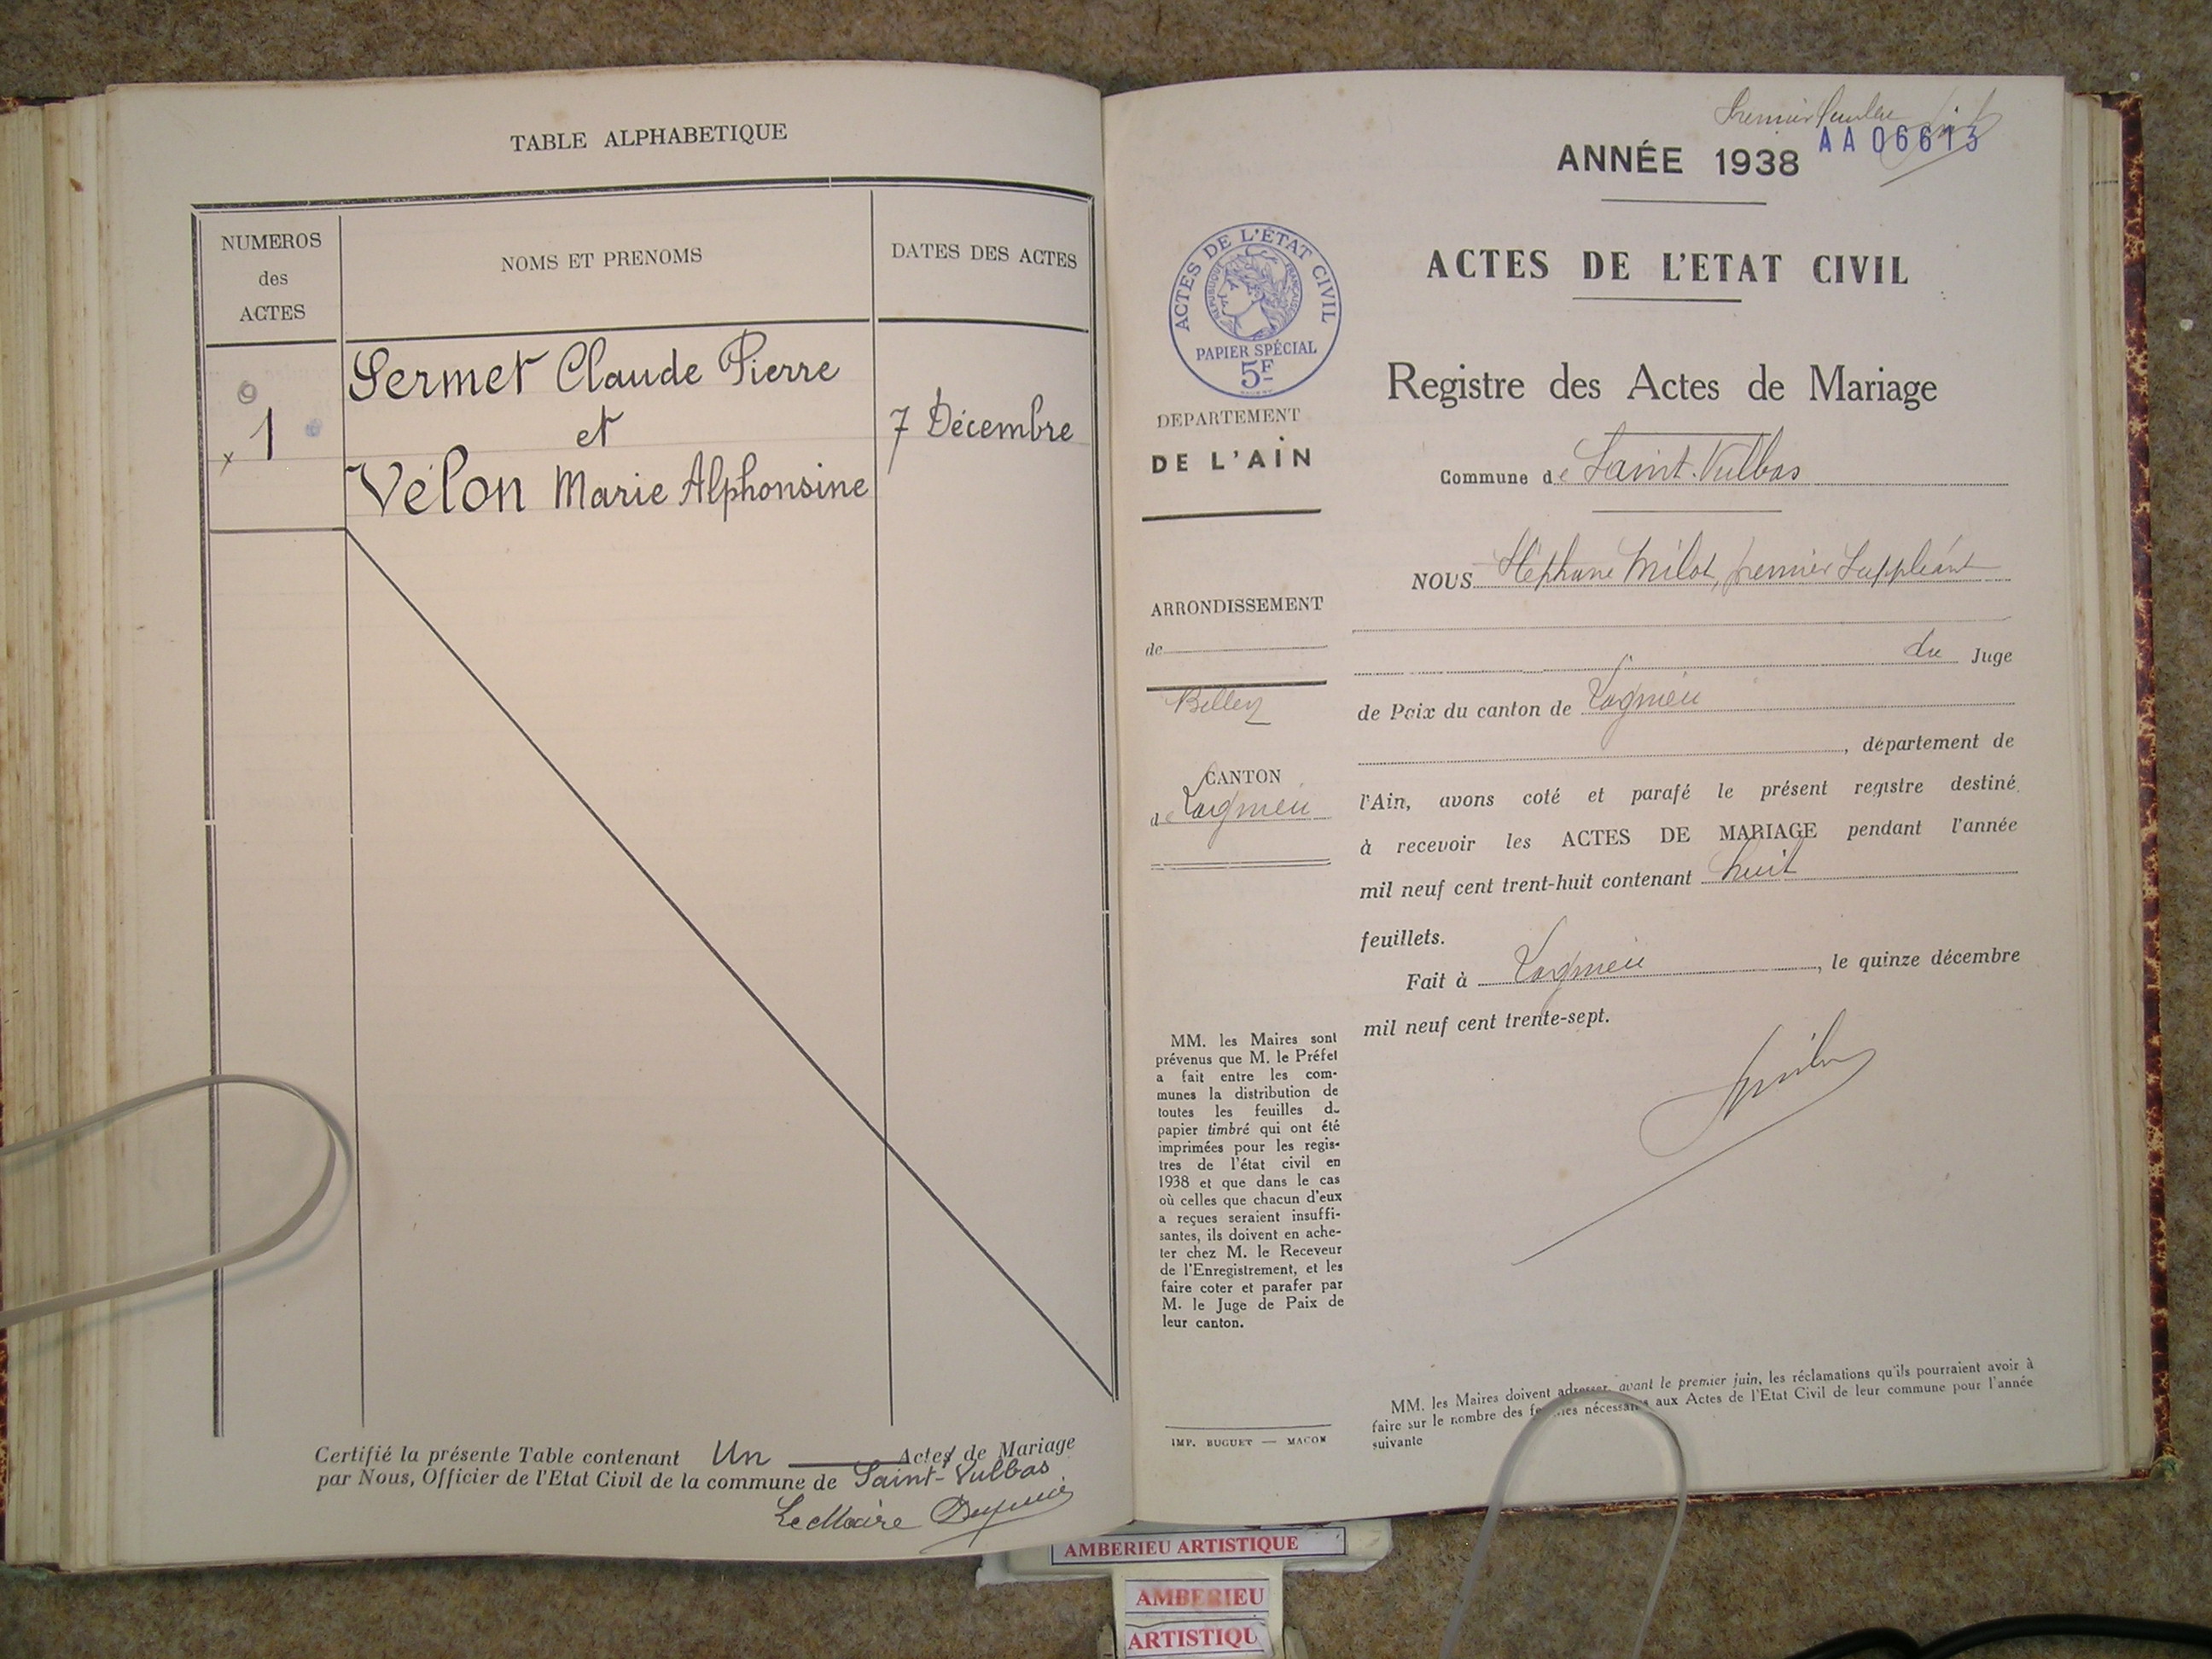 TABLE ALPHABETIQUE
NUMEROS
des
ACTES
NOMS ET PRENOMS
DATES DES ACTES
Sermet Claude Pierre
et
Vélon Marie Alphonsine
x 1
7 Décembre
Certifié la présente Table contenant Un Actes de Mariage
par Nous, Officier de l'Etat Civil de la commune de Saint-Vulbas
Le Maire
Premier feuillet
AA06613
ANNÉE 1938
ACTES DE L'ETAT CIVIL
ACTES DE L'ÉTAT CIVIL
RÉPUBLIQUE FRANÇAISE
PAPIER SPÉCIAL
5F
Registre des Actes de Mariage
DEPARTEMENT
DE L'AIN
Commune de Saint-Vulbas
ARRONDISSEMENT
de
Belley
CANTON
de Lagnieu
NOUS Stéphane Milot, premier Suppléant
du Juge
de Paix du canton de Lagnieu
, département de
l'Ain, avons coté et parafé le présent registre destiné
à recevoir les ACTES DE MARIAGE pendant l'année
mil neuf cent trent-huit contenant huit
feuillets.
Fait à Lagnieu, le quinze décembre
mil neuf cent trente-sept.
MM. les Maires sont
prévenus que M. le Préfet
a fait entre les com-
munes la distribution de
toutes les feuilles de
papier timbré qui ont été
imprimées pour les regis-
tres de l'état civil en
1938 et que dans le cas
où celles que chacun d'eux
a reçues seraient insuffi-
santes, ils doivent en ache-
ter chez M. le Receveur
de l'Enregistrement, et les
faire coter et parafer par
M. le Juge de Paix de
leur canton.
IMP. BUGUET — MACON
MM. les Maires doivent adresser, avant le premier juin, les réclamations qu'ils pourraient avoir à
faire sur le nombre des feuilles nécessaires aux Actes de l'Etat Civil de leur commune pour l'année
suivante
AMBERIEU ARTISTIQUE
AMBERIEU
ARTISTIQU